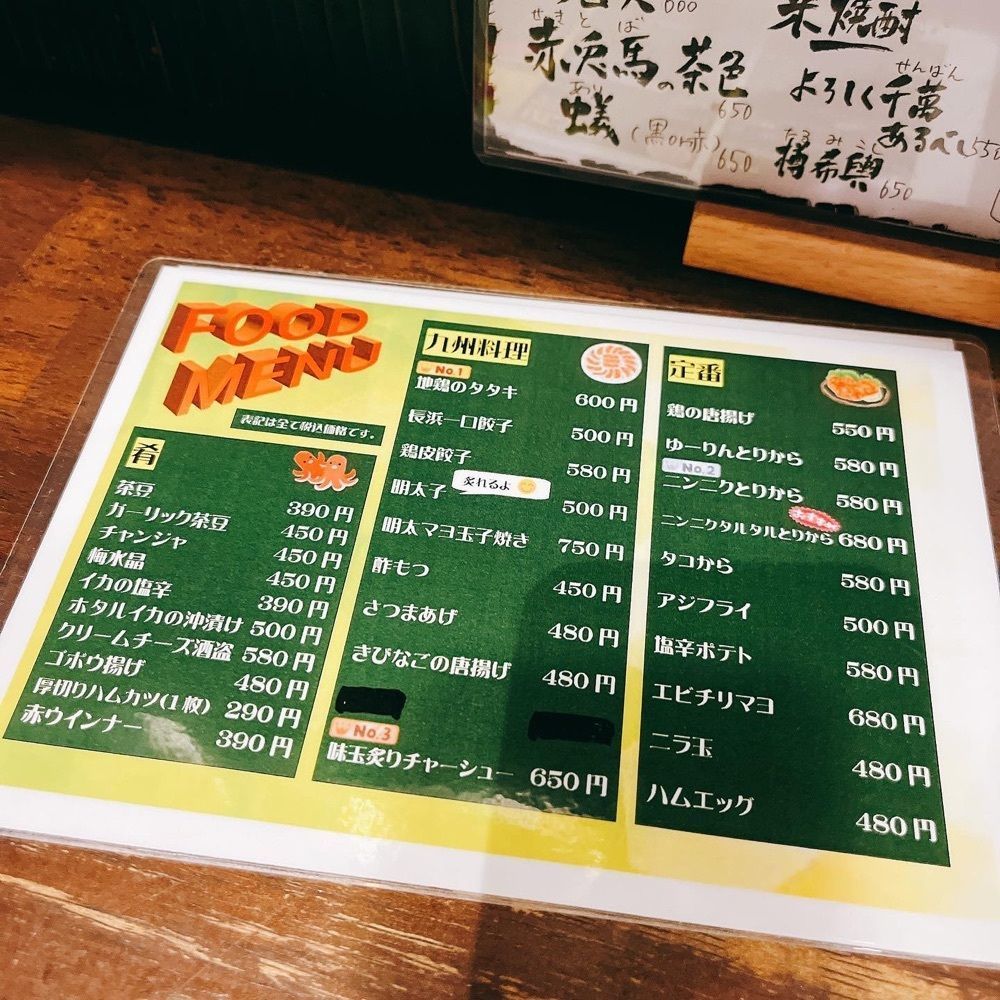 000
せきとば
赤兎馬の茶色
650
あり
蟻(黒or赤)
650
米焼酎
せんばん
よろしく千萬
あるべし550
たるみこし
樽希輿
650
FOOD
MENU
表記は全て税込価格です。
肴
茶豆 390円
ガーリック茶豆 450円
チャンジャ 450円
梅水晶 450円
イカの塩辛 390円
ホタルイカの沖漬け 500円
クリームチーズ酒盗 580円
ゴボウ揚げ 480円
厚切りハムカツ(1枚) 290円
赤ウインナー 390円
九州料理
No.1
地鶏のタタキ 600円
長浜一口餃子 500円
鶏皮餃子 580円
明太子 炙れるよ 500円
明太マヨ玉子焼き 750円
酢もつ 450円
さつまあげ 480円
きびなごの唐揚げ 480円
No.3
味玉炙りチャーシュー 650円
定番
鶏の唐揚げ 550円
ゆーりんとりから 580円
No.2
ニンニクとりから 580円
おすすめ
ニンニクタルタルとりから 680円
タコから 580円
アジフライ 500円
塩辛ポテト 580円
エビチリマヨ 680円
ニラ玉 480円
ハムエッグ 480円